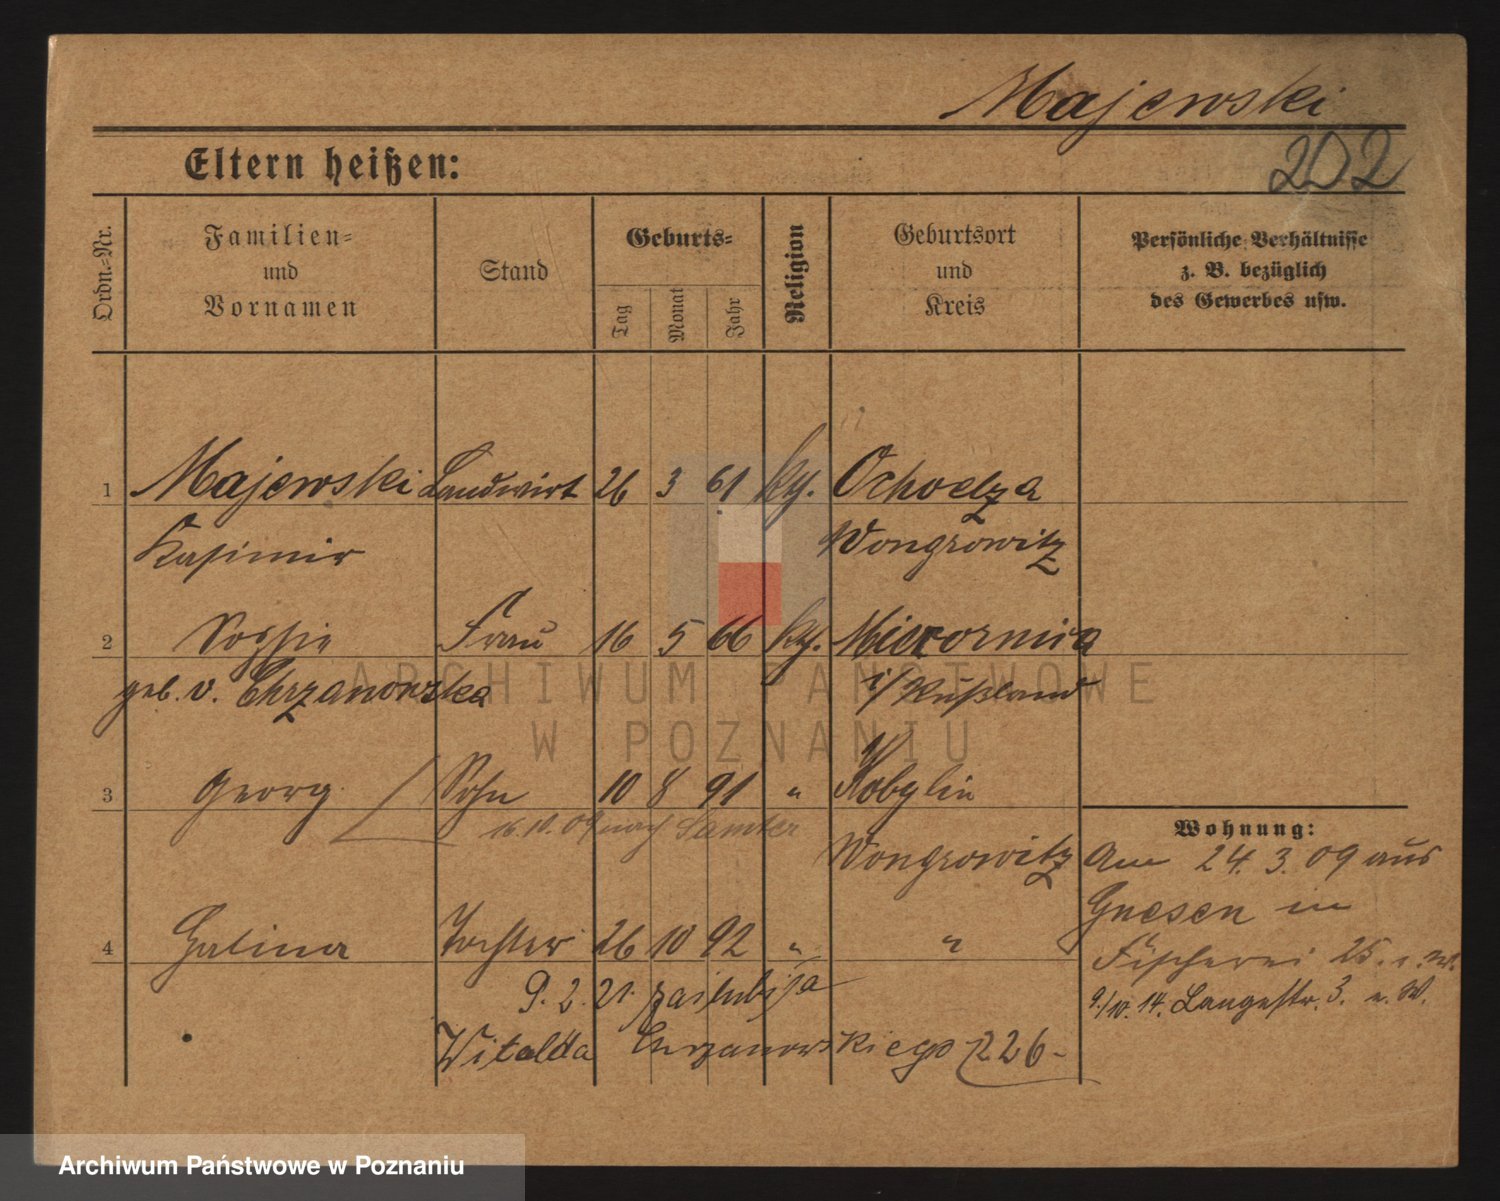 Majewski
202
Eltern heißen:
Ordn.-Nr.
Familien-
und
Vornamen
Stand
Geburts-
Tag
Monat
Jahr
Religion
Geburtsort
und
Kreis
Persönliche Verhältnisse
z. B. bezüglich
des Gewerbes usw.
1 Majewski Landwirt 26 3 61 Ochodza
Kasimir Wongrowitz
2 Sophie Frau 16 5 66
geb. v. Chrzanowska i/Rußland
3 Georg Sohn 10 8 91 " Kobylin
16.10.09 nach Samter
Wongrowitz
4 Halina Tochter 26 10 92 " "
9.2.21. zaślubiła
Witolda Chrzanowskiego 226
Wohnung:
Am 24.3.09 aus
Gnesen in
Fischerei 25.
9./10.14. Langestr. 3. n. W.
ARCHIWUM PAŃSTWOWE
W POZNANIU
Archiwum Państwowe w Poznaniu